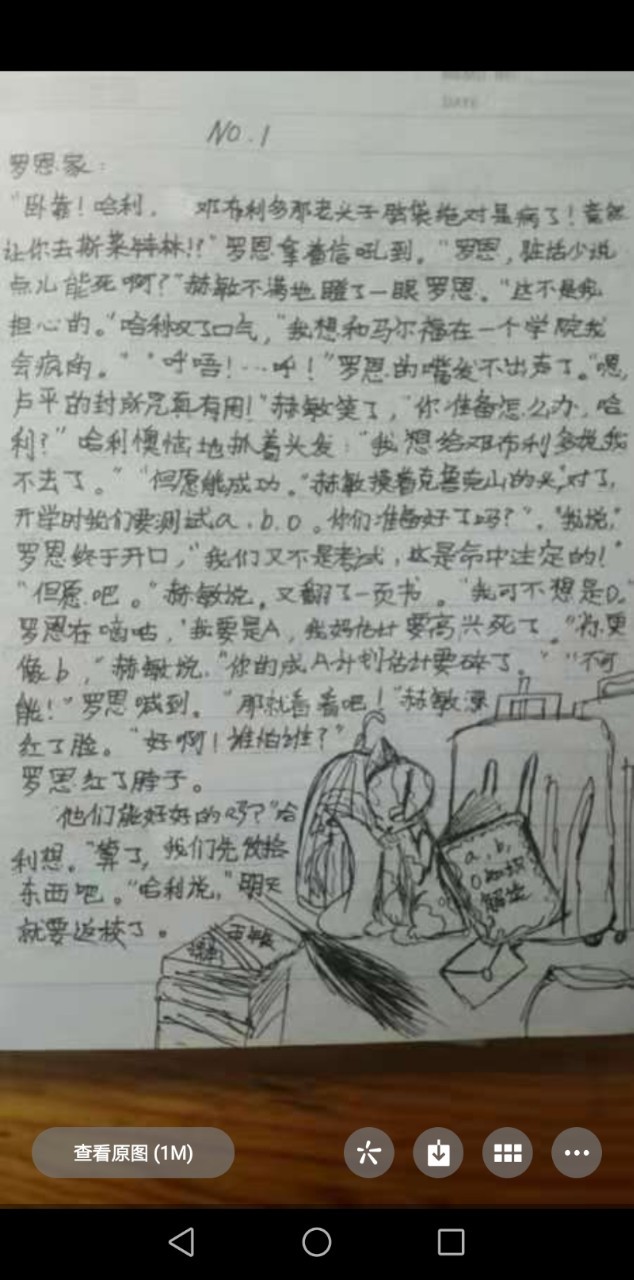 DATE
NO.1
罗恩家:
"卧靠!哈利, 邓布利多那老头子脑袋绝对是病了!竟然
让你去斯莱特林!?"罗恩拿着信吼到。"罗恩,脏话少说
点儿能死啊?"赫敏不满地瞪了一眼罗恩。"这不是我
担心的。"哈利叹了口气,"我想和马尔福在一个学院我
会疯的。" "呼唔!…呼!"罗恩的嘴发不出声了。"嗯,
卢平的封所咒真有用!"赫敏笑了,"你准备怎么办,哈
利?"哈利懊恼地抓着头发:"我想给邓布利多说我
不去了。" "但愿能成功。"赫敏摸着克鲁克山的头,"对了,
开学时我们要测试a.b.o。你们准备好了吗?"。"我说,"
罗恩终于开口,"我们又不是考试,这是命中注定的!"
"但愿吧。"赫敏说,又翻了一页书。"我可不想是O。"
罗恩在嘀咕,"我要是A,我妈估计要高兴死了。"你更
像b,"赫敏说."你的成A计划估计要碎了。" "不可
能!"罗恩喊到。"那就看着吧!"赫敏涨
红了脸。"好啊!谁怕谁?"
罗恩红了脖子。
"他们能好好的吗?"哈
利想。"算了,我们先收拾
东西吧。"哈利说,"明天
就要返校了。
a.b.
O知识
解宝
查看原图 (1M)